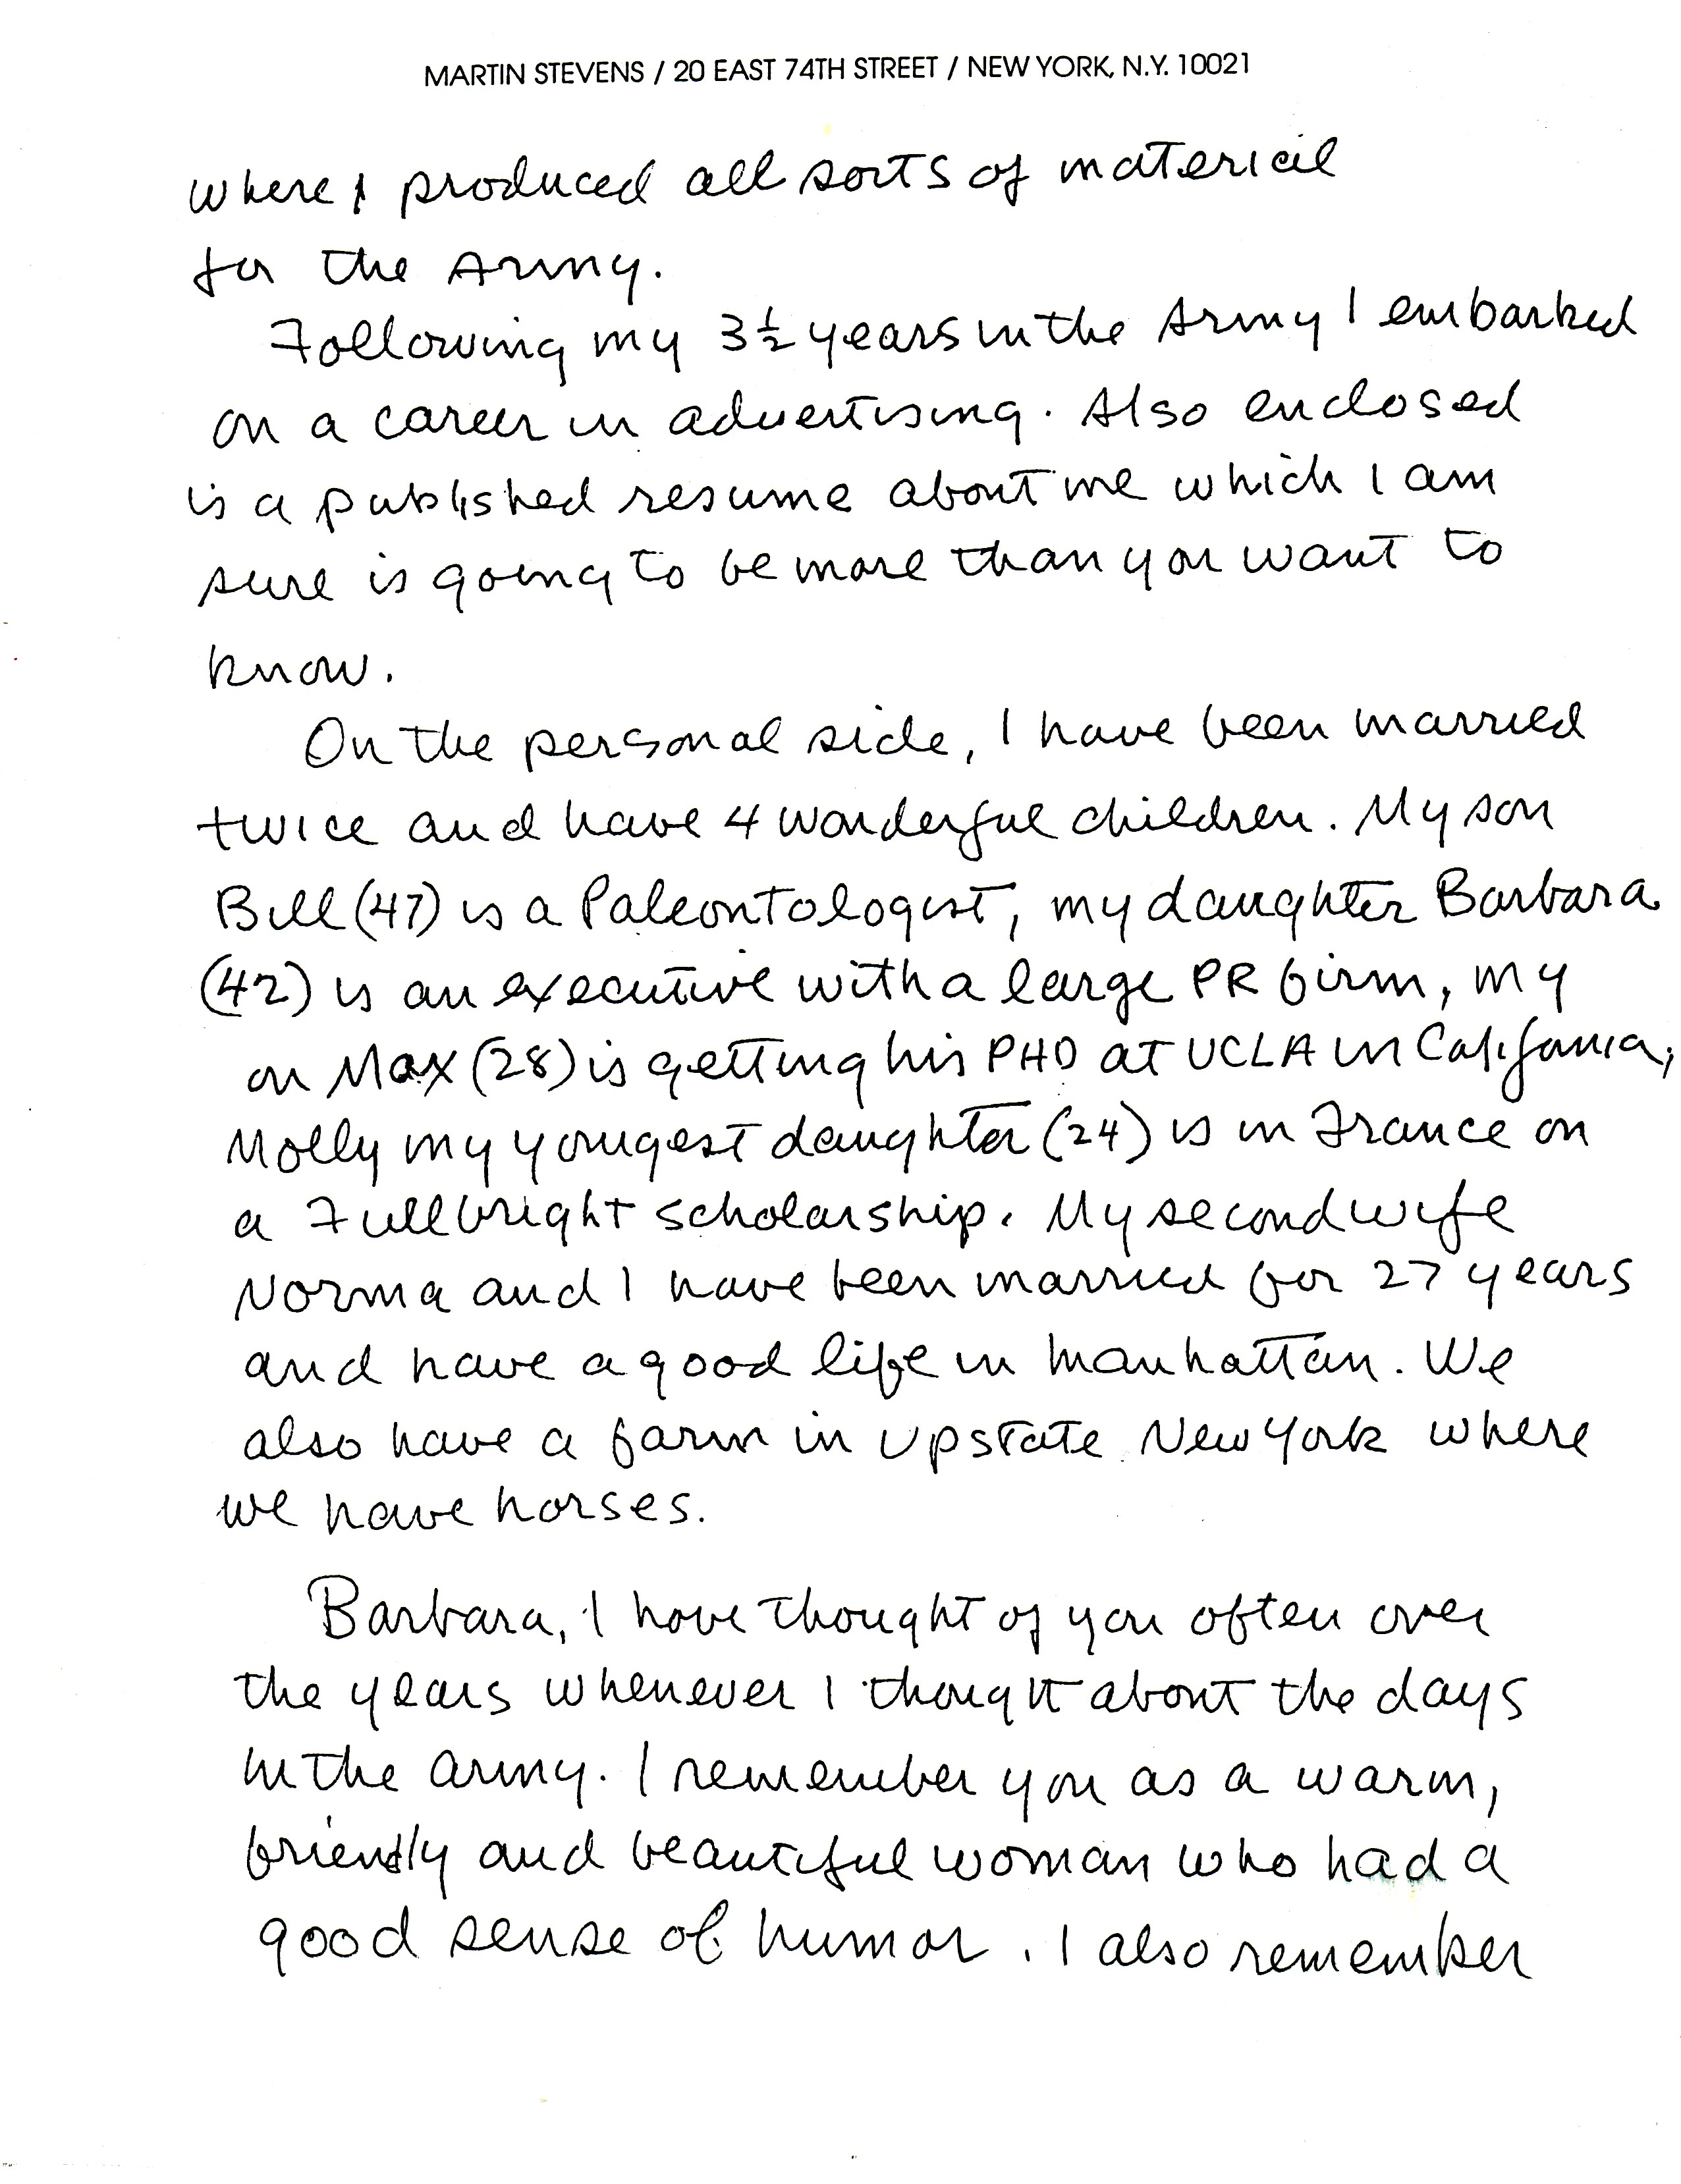 MARTIN STEVENS / 20 EAST 74TH STREET / NEW YORK, N.Y. 10021
where I produced all sorts of material
for the Army.
Following my 3½ years in the Army I embarked
on a career in advertising. Also enclosed
is a published resume about me which I am
sure is going to be more than you want to
know.
On the personal side, I have been married
twice and have 4 wonderful children. My son
Bill (47) is a Paleontologist, my daughter Barbara
(42) is an executive with a large PR firm, my
on Max (28) is getting his PHD at UCLA in California,
Molly my yougest daughter (24) is in France on
a Fullbright scholarship. My second wife
Norma and I have been married for 27 years
and have a good life in Manhattan. We
also have a farm in upstate New York where
we have horses.
Barbara, I have thought of you often over
the years whenever I thought about the days
in the army. I remember you as a warm,
friendly and beautiful woman who had a
good sense of humor. I also remember